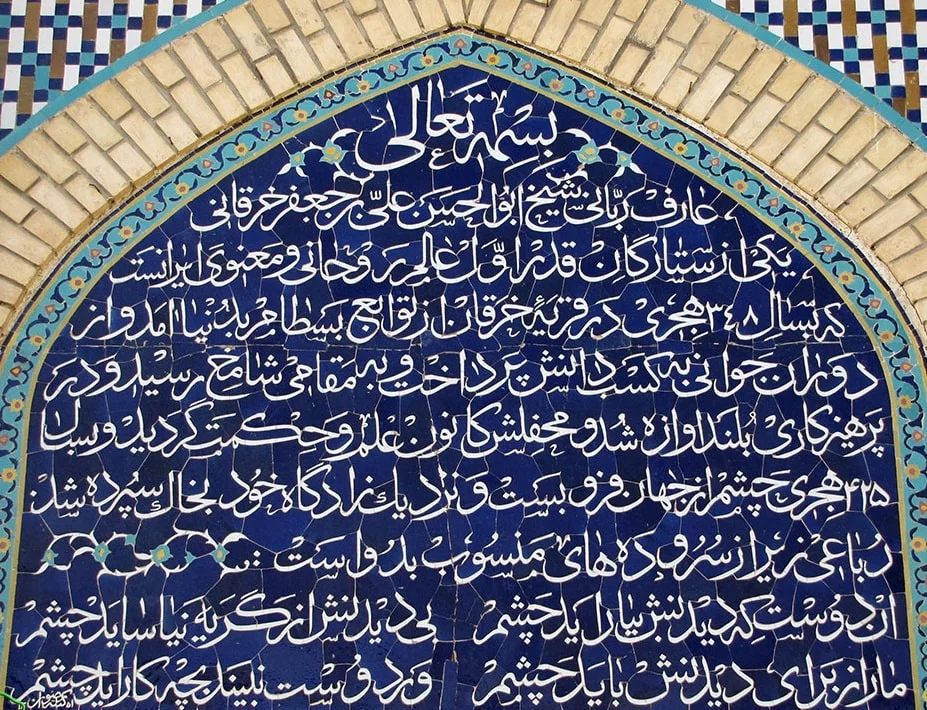 بسمه تعالی
عارف ربّانی شیخ ابوالحسن علیّ بن جعفر خرقانی
یکی از ستارگان قدر اوّل عالم روحانی و معنوی ایرانست
که بسال ۳۴۸ هجری در قریهٔ خرقان از توابع بسطام بدنیا آمد و از
دوران جوانی به کسب دانش پرداخت و به مقامی شامخ رسید و در
پرهیزکاری بلند آوازه شد و محفلش کانون علم و حکمت گردید و بسال
۴۲۵ هجری چشم از جهان فرو بست و نزدیک زادگاه خود بخاک سپرده شد
رباعی زیر از سروده های منسوب بدو است :
آن دوست که دیدنش بیاراید چشم بی دیدنش از گریه نیاساید چشم
ما را ز برای دیدنش باید چشم ور دوست نبیند بچه کار آید چشم